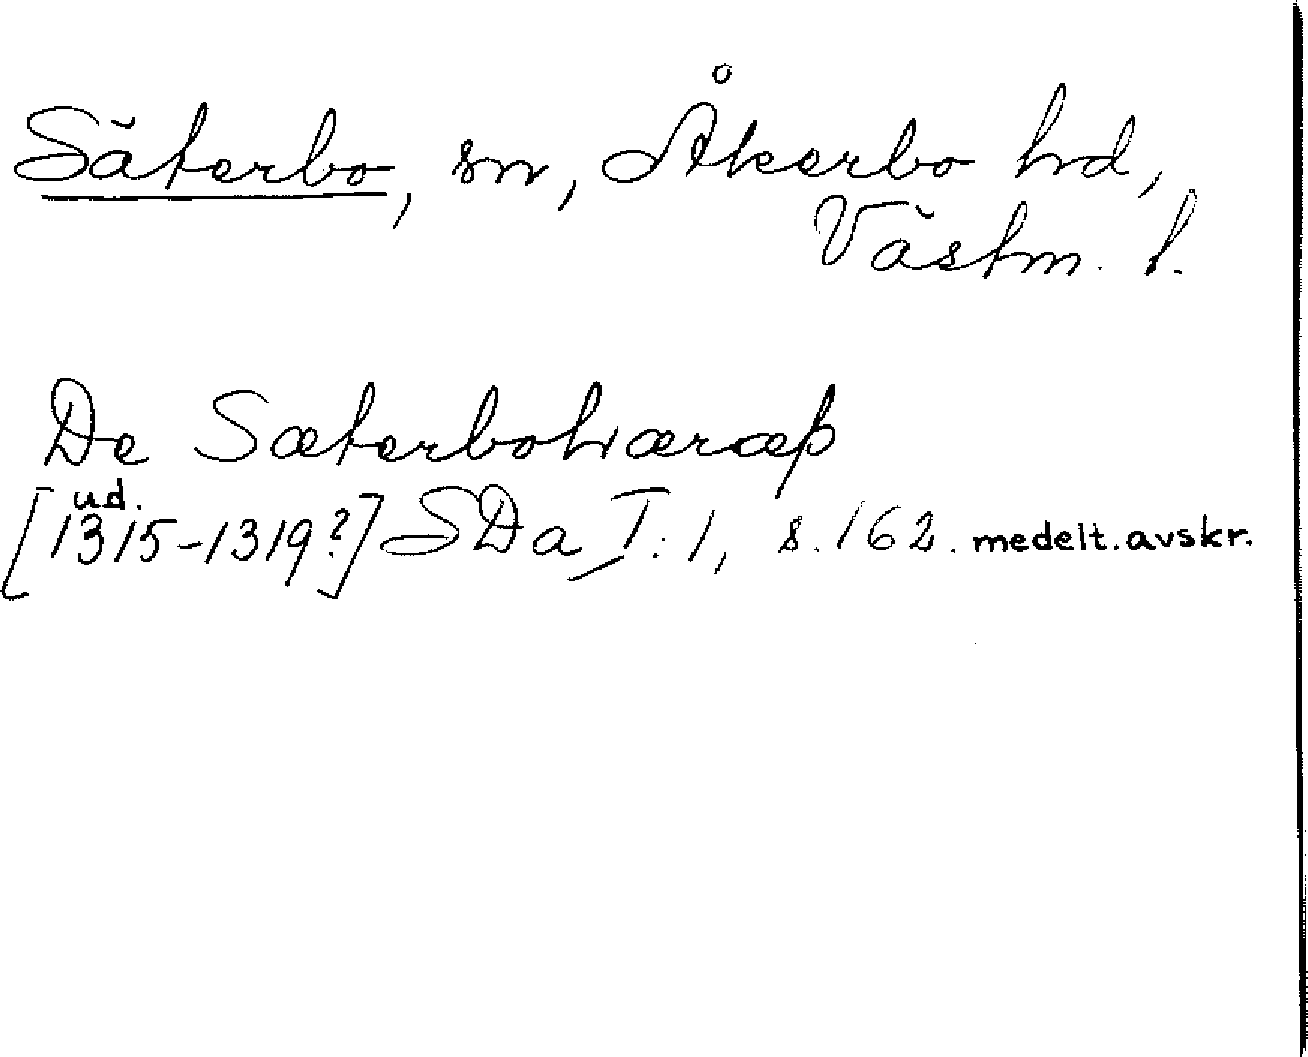 Säterbo, sn, Åkerbo hd,
Västm. l.
De Sæterbohæræþ
ud.
[1315-1319?] SDa I:1, s. 162. medelt. avskr.